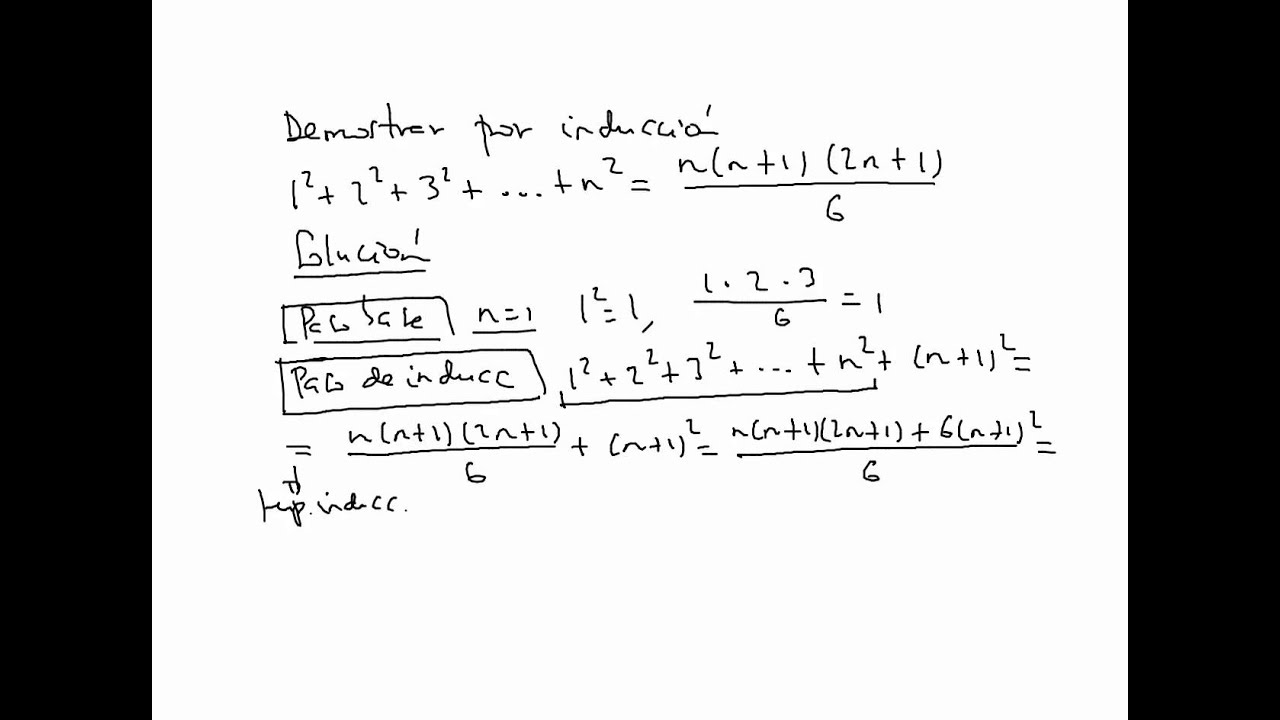 Demostrar por inducción
1² + 2² + 3² + ... + n² = n(n+1)(2n+1)/6
Solución
Paso base n=1 1² = 1, 1·2·3/6 = 1
Paso de inducc 1² + 2² + 3² + ... + n² + (n+1)² =
= n(n+1)(2n+1)/6 + (n+1)² = n(n+1)(2n+1) + 6(n+1)²/6 =
hip. inducc.